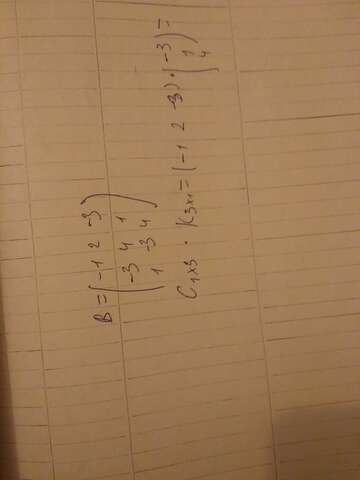 B = ( -1 2 -3 )
( -3 4 1 )
( 1 -3 4 )
C1x3 · K3x1 = ( -1 2 -3 ) · ( -3 1 4 ) =